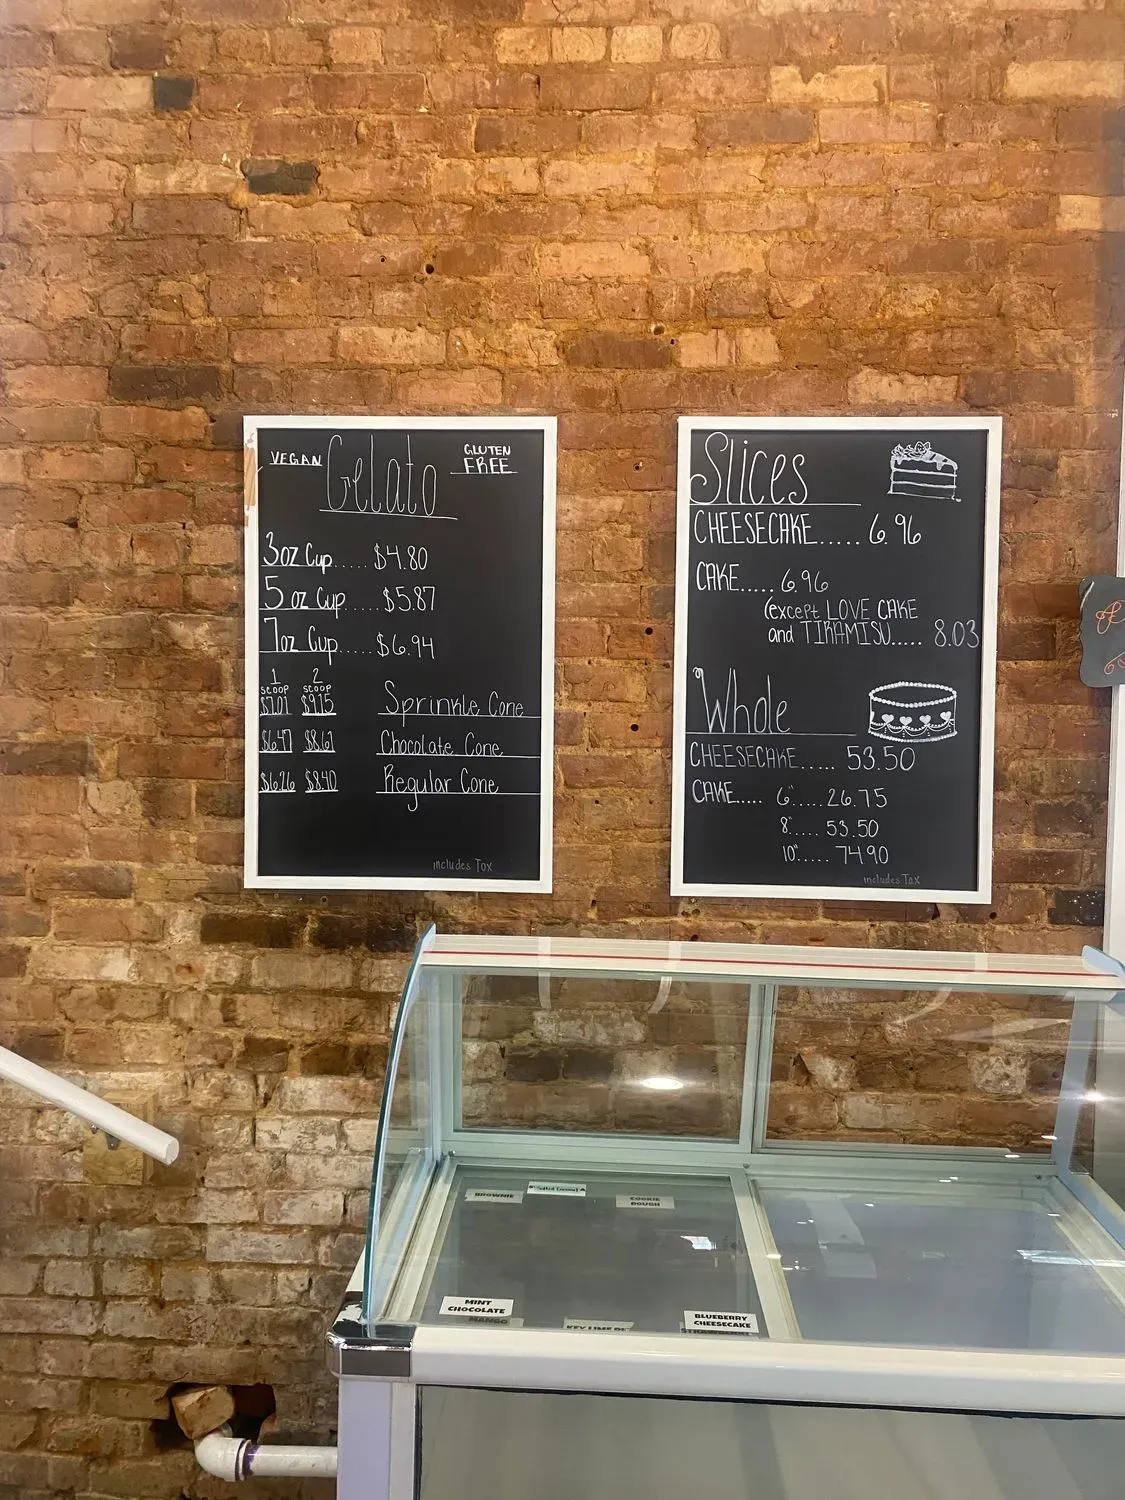 VEGAN Gelato GLUTEN FREE
3oz Cup..... $4.80
5 oz Cup..... $5.87
7oz Cup..... $6.94
1 scoop 2 scoop
$7.01 $9.15 Sprinkle Cone
$6.47 $8.61 Chocolate Cone
$6.26 $8.40 Regular Cone
includes Tax
Slices
CHEESECAKE..... 6.96
CAKE..... 6.96
(except LOVE CAKE
and TIRAMISU..... 8.03
Whole
CHEESECAKE..... 53.50
CAKE..... 6"..... 26.75
8"..... 53.50
10"..... 74.90
includes Tax
BROWNIE
Salted Caramel
COOKIE
DOUGH
MINT
CHOCOLATE
MANGO
KEY LIME PIE
BLUEBERRY
CHEESECAKE